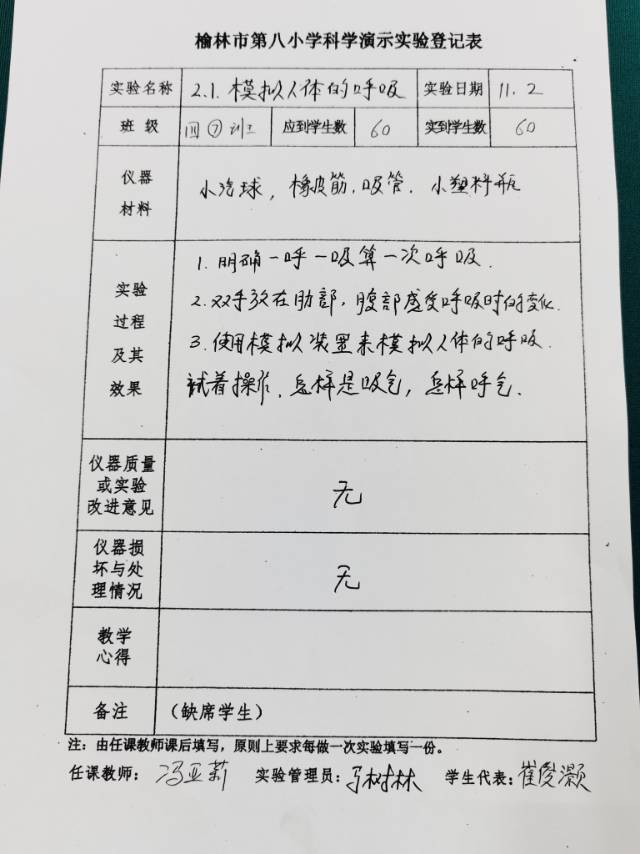 榆林市第八小学科学演示实验登记表
实验名称 2.1.模拟人体的呼吸 实验日期 11.2
班 级 四⑦班 应到学生数 60 实到学生数 60
仪器
材料
小汽球,橡皮筋,吸管.小塑料瓶
实验
过程
及其
效果
1.明确一呼一吸算一次呼吸.
2.双手放在肋部,腹部感受呼吸时的变化.
3.使用模拟装置来模拟人体的呼吸.
试着操作.怎样是吸气,怎样呼气.
仪器质量
或实验
改进意见
无
仪器损
坏与处
理情况
无
教学
心得
备注 (缺席学生)
注:由任课教师课后填写,原则上要求每做一次实验填写一份。
任课教师:冯亚莉 实验管理员:马树林 学生代表:崔俊灏